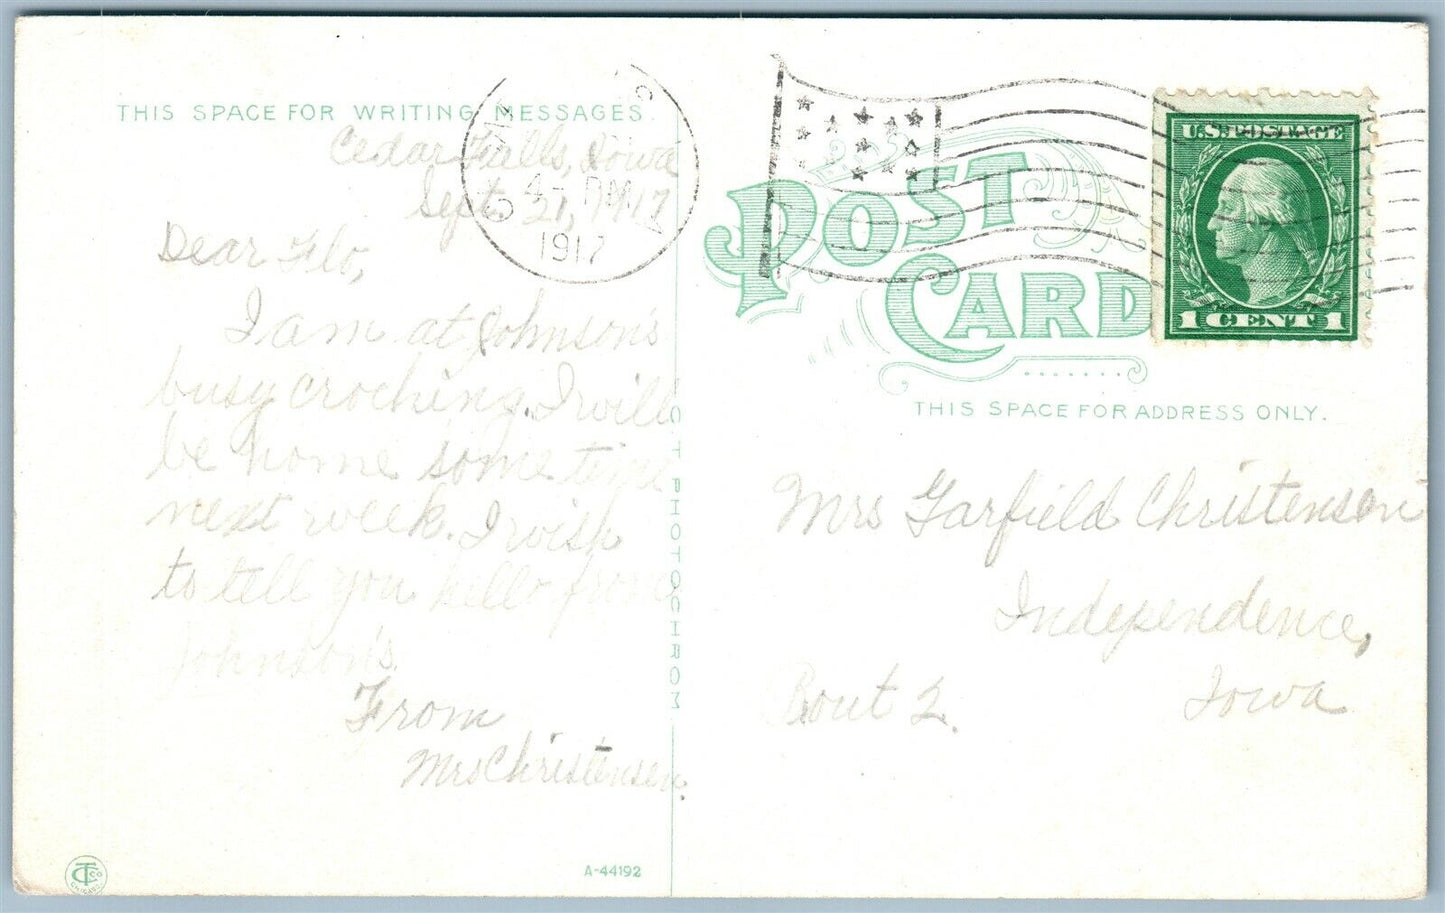 THIS SPACE FOR WRITING MESSAGES.
Cedar Falls, Iowa
Sept. 21, 1917
Dear Flo,
I am at Johnson's
busy croching. I will
be home some time
next week. I wish
to tell you hello from
Johnson's.
From
Mrs Christensen.
A-44192
C.T. PHOTOCHROM
4- PM
1917
POST
CARD
U.S. POSTAGE
1 CENT 1
THIS SPACE FOR ADDRESS ONLY.
Mrs Garfield Christensen
Independence,
Iowa
Rout 2.